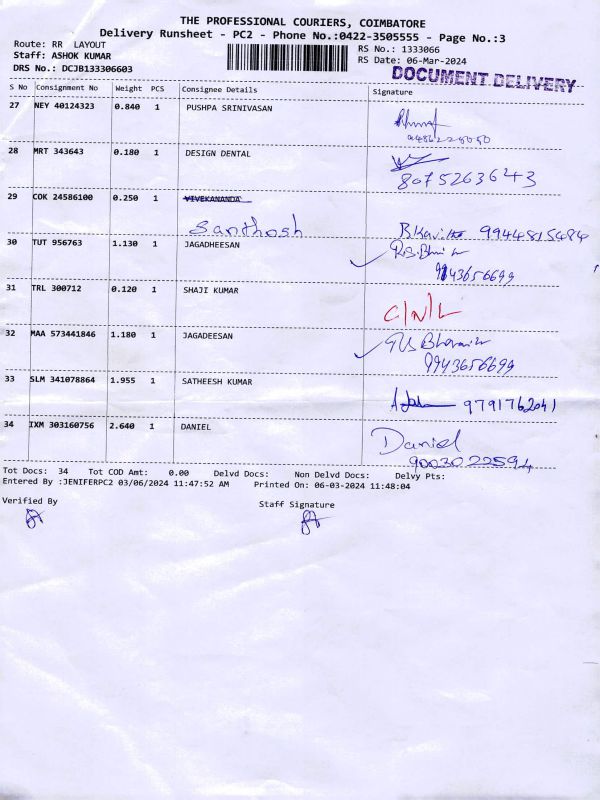 THE PROFESSIONAL COURIERS, COIMBATORE
Delivery Runsheet - PC2 - Phone No.:0422-3505555 - Page No.:3
Route: RR LAYOUT
RS No.: 1333066
Staff: ASHOK KUMAR
RS Date: 06-Mar-2024
DRS No.: DCJB133306603
DOCUMENT DELIVERY
S No Consignment No Weight PCS Consignee Details Signature
27 NEY 40124323 0.840 1 PUSHPA SRINIVASAN
28 MRT 343643 0.180 1 DESIGN DENTAL
8075263643
29 COK 24586100 0.250 1 VIVEKANANDA
Santhosh 9944815484
30 TUT 956763 1.130 1 JAGADHEESAN
9943656699
31 TRL 300712 0.120 1 SHAJI KUMAR
C/N/L
32 MAA 573441846 1.180 1 JAGADEESAN
9943656699
33 SLM 341078864 1.955 1 SATHEESH KUMAR
9791762041
34 IXM 303160756 2.640 1 DANIEL
Daniel
9003022594
Tot Docs: 34 Tot COD Amt: 0.00 Delvd Docs: Non Delvd Docs: Delvy Pts:
Entered By :JENIFERPC2 03/06/2024 11:47:52 AM Printed On: 06-03-2024 11:48:04
Verified By
Staff Signature